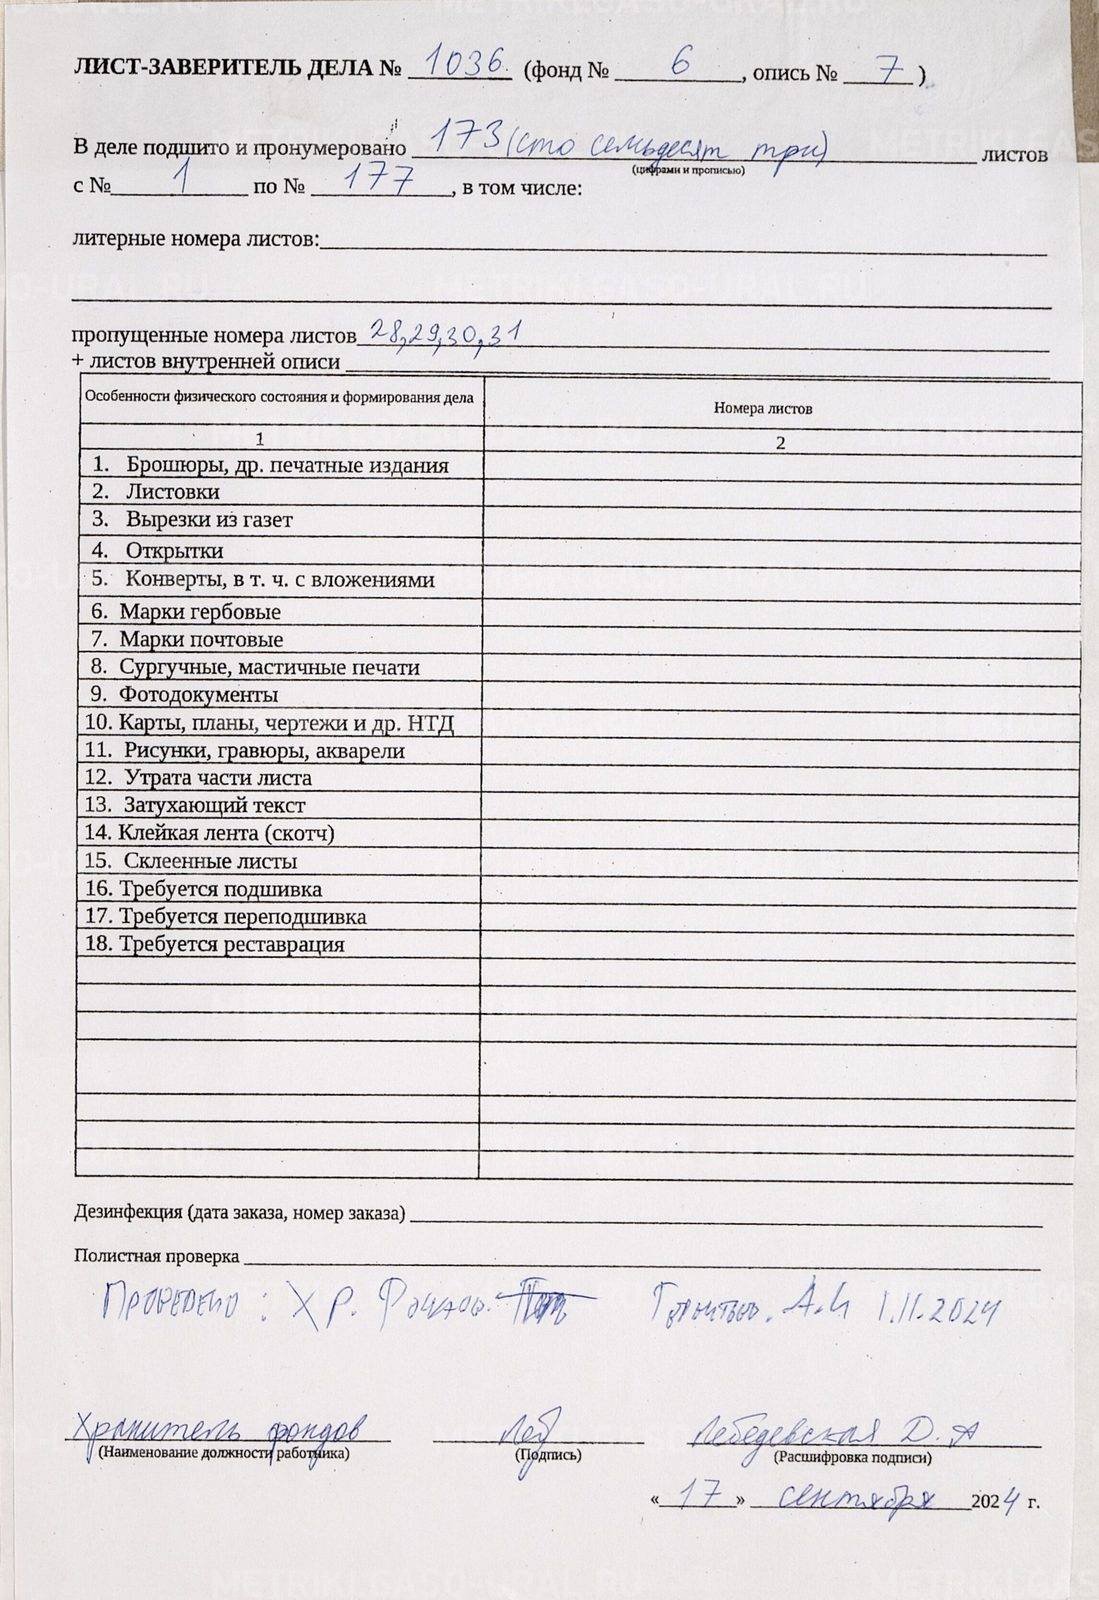 ЛИСТ-ЗАВЕРИТЕЛЬ ДЕЛА № 1036. (фонд № 6, опись № 7)
В деле подшито и пронумеровано 173 (сто семьдесят три) листов
(цифрами и прописью)
с № 1 по № 177, в том числе:
литерные номера листов:
пропущенные номера листов 28,29,30,31
+ листов внутренней описи
Особенности физического состояния и формирования дела Номера листов
1 2
1. Брошюры, др. печатные издания
2. Листовки
3. Вырезки из газет
4. Открытки
5. Конверты, в т. ч. с вложениями
6. Марки гербовые
7. Марки почтовые
8. Сургучные, мастичные печати
9. Фотодокументы
10. Карты, планы, чертежи и др. НТД
11. Рисунки, гравюры, акварели
12. Утрата части листа
13. Затухающий текст
14. Клейкая лента (скотч)
15. Склеенные листы
16. Требуется подшивка
17. Требуется переподшивка
18. Требуется реставрация
Дезинфекция (дата заказа, номер заказа)
Полистная проверка
Проверено: Хр. А.И 1.11.2024
Хранитель фондов Леб Лебедевская Д. А
(Наименование должности работника) (Подпись) (Расшифровка подписи)
« 17 » сентября 2024 г.
METRIKI.GASO-URAL.RU